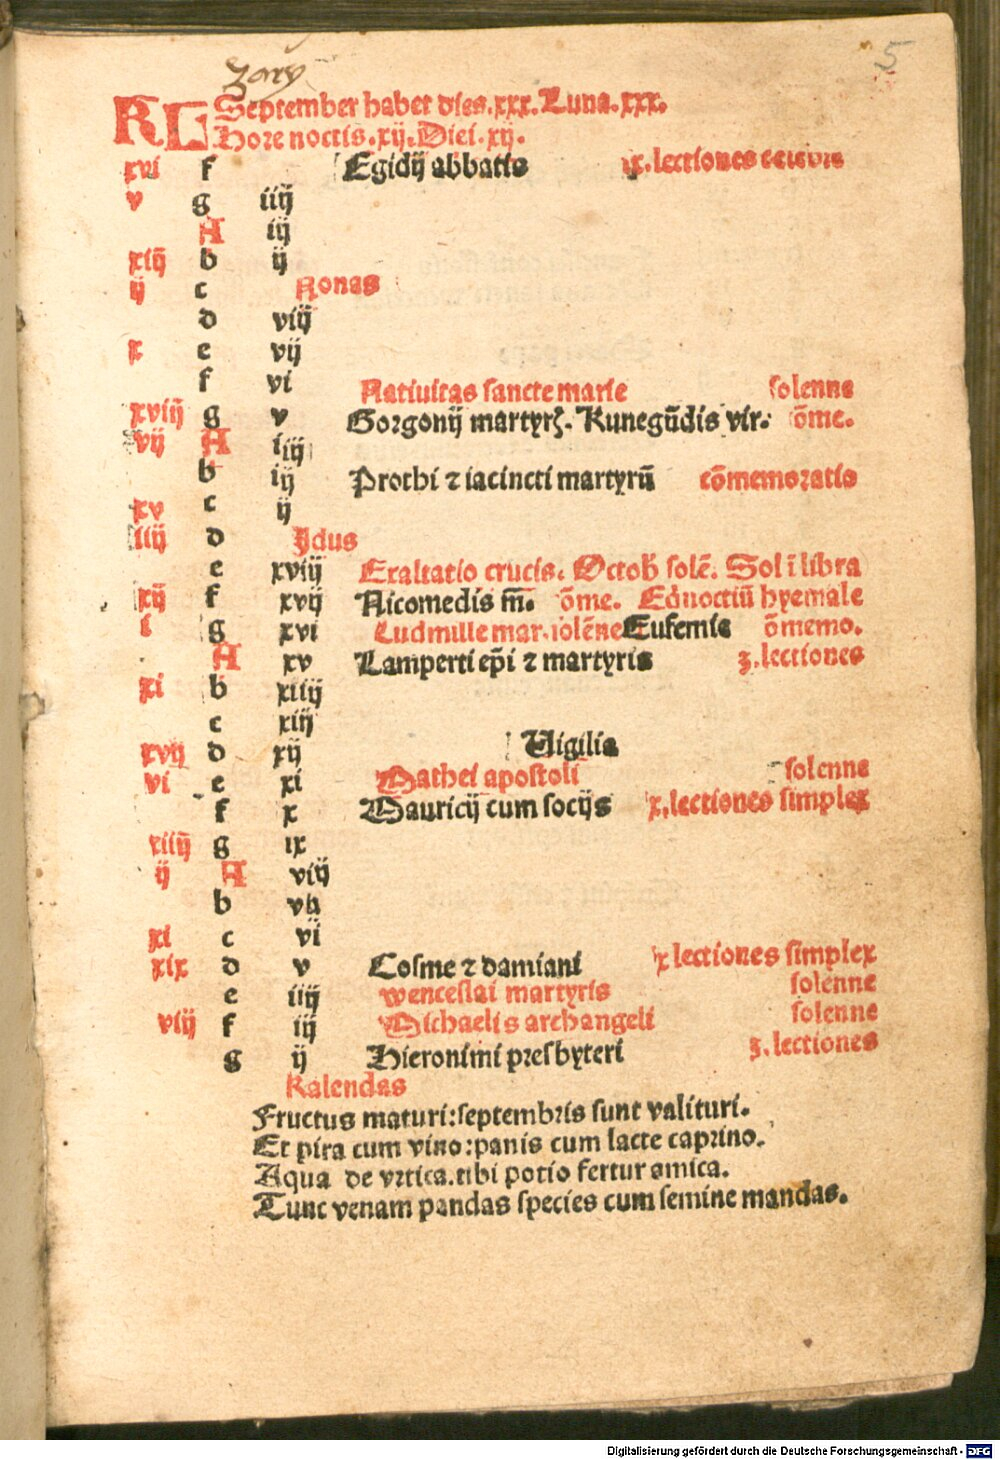 5
KL September habet dies.xxx.Luna.xxx.
Hore noctis.xij.Diei.xij.
xvi f Egidij abbatis ix.lectiones
v g iiij
A iij
xiij b ij
ij c Nonas
d viij
x e vij
f vi Natiuitas sancte marie solenne
xviij g v Gorgonij martyrꝫ. Kunegūdis vir. ōme.
vij A iiij
b iij Prothi ⁊ iacincti martyrū cōmemoratio
xv c ij
iiij d Jdus
e xviij Exaltatio crucis. Octob̄ solē. Sol ī libra
xij f xvij Nicomedis m̄. ōme. Eq̇noctiū hyemale
i g xvi Ludmille mar.solēne Eufemie ōmemo.
A xv Lamperti ep̄i ⁊ martyris 3.lectiones
xi b xiiij
c xiij
xvij d xij Uigilia
vi e xi Mathei apostoli solenne
f x Mauricij cum socijs ix.lectiones simplex
xiiij g ix
ij A viij
b vij
xi c vi
xix d v Cosme ⁊ damiani ix lectiones simplex
e iiij wenceslai martyris solenne
viij f iij Michaelis archangeli solenne
g ij Hieronimi presbyteri 3.lectiones
Kalendas
Fructus maturi:septembris sunt valituri.
Et pira cum vino:panis cum lacte caprino.
Aqua de vrtica.tibi potio fertur amica.
Tunc venam pandas species cum semine mandas.
Digitalisierung gefördert durch die Deutsche Forschungsgemeinschaft - DFG